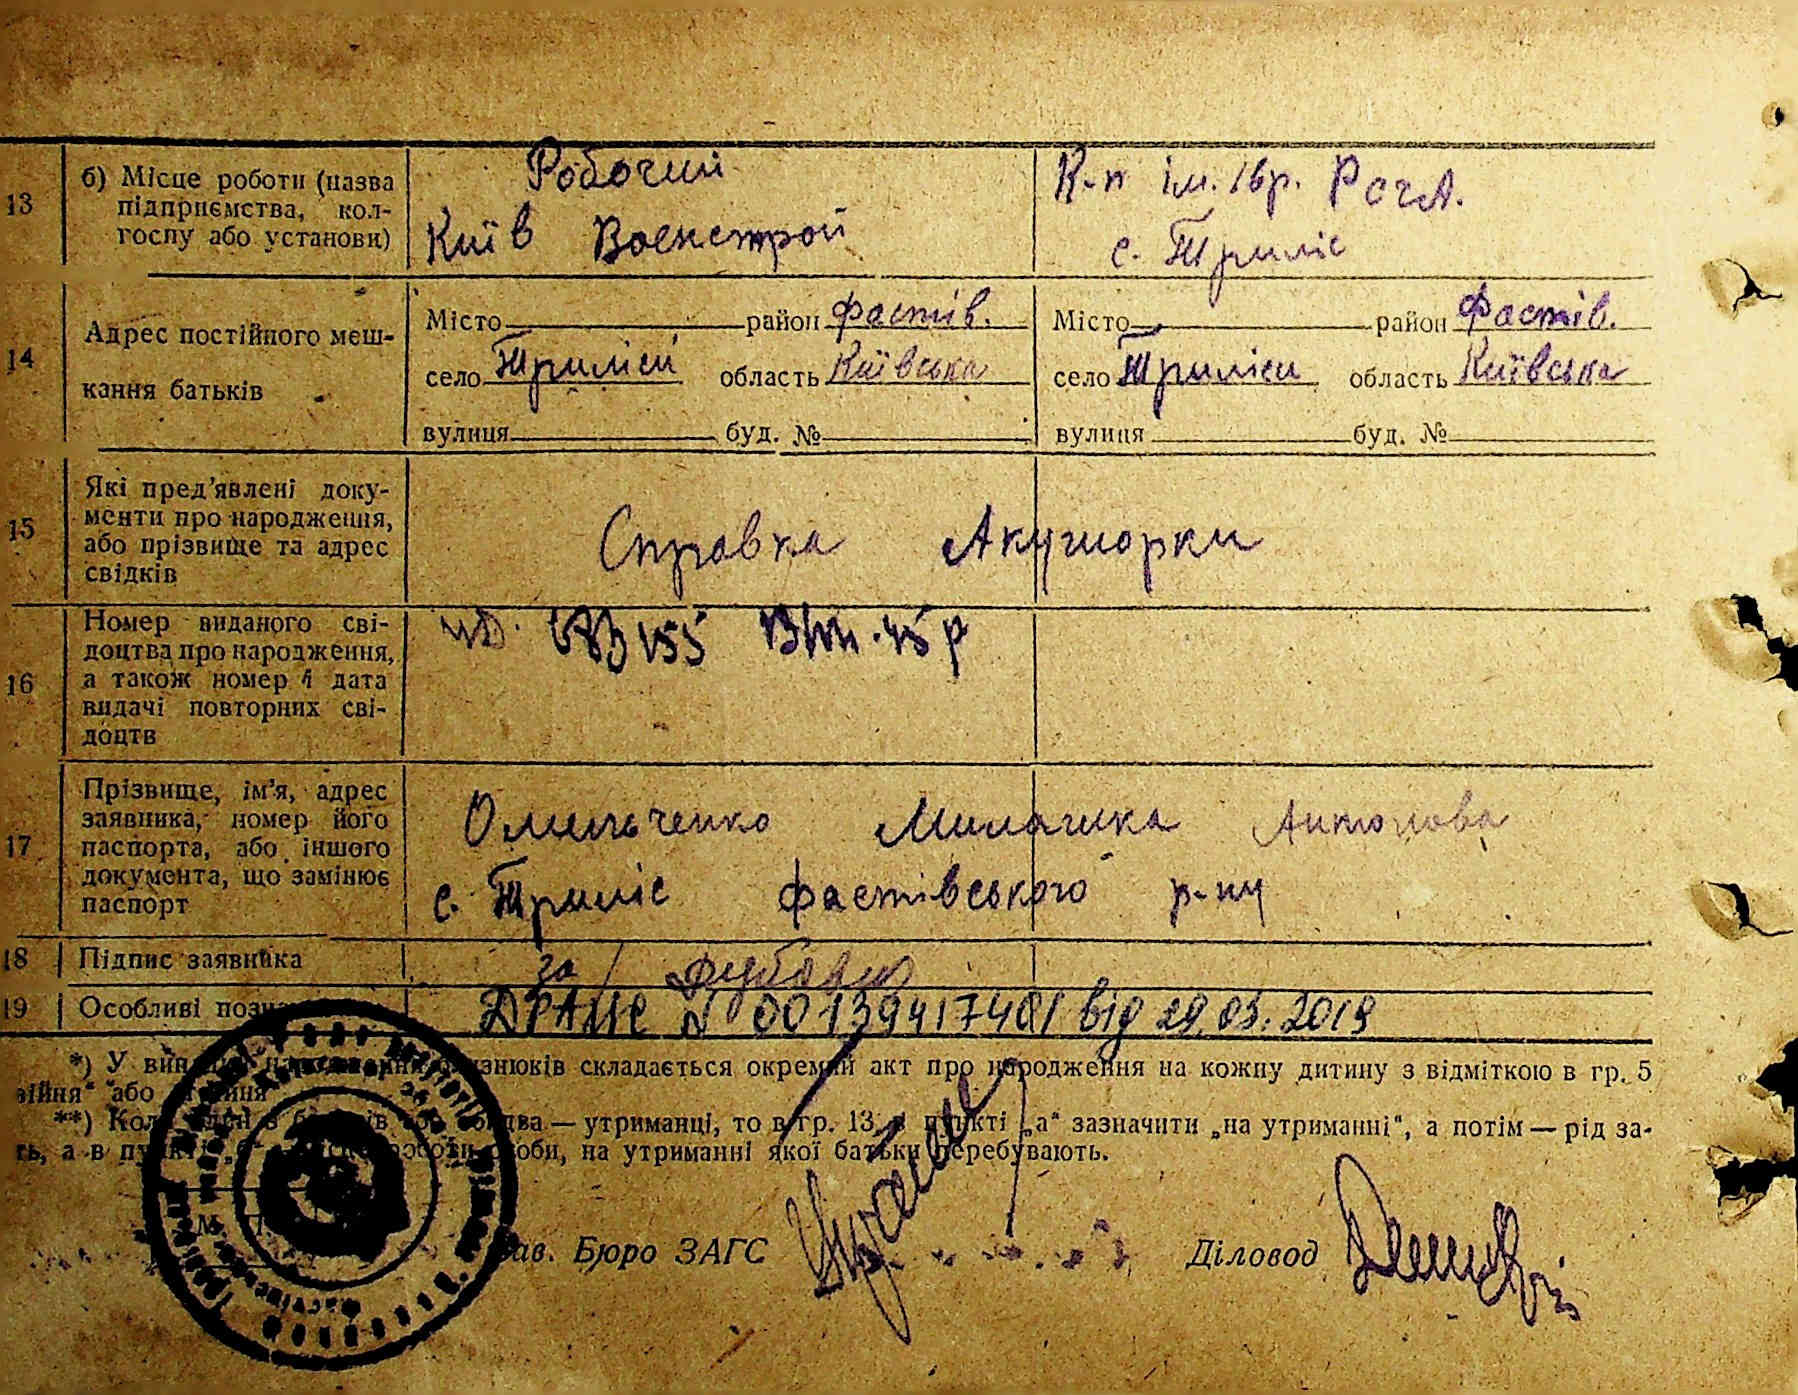 13
б) Місце роботи (назва
підприємства, кол-
госпу або установи)
Робочий
Київ Военстрой
К-п ім. 16р. РСЧА.
с. Триліс
14
Адрес постійного меш-
кання батьків
Місто район Фастів.
село Триліси область Київська
вулиця буд. №
Місто район Фастів.
село Триліси область Київська
вулиця буд. №
15
Які пред'явлені доку-
менти про народження,
або прізвище та адрес
свідків
Справка Акушорки
16
Номер виданого сві-
доцтва про народження,
а також номер і дата
видачі повторних сві-
доцтв
17
Прізвище, ім'я, адрес
заявника, номер його
паспорта, або іншого
документа, що замінює
паспорт
Омельченко Антонова
с. Триліс Фастівського р-ну
18
Підпис заявника
за
19
Особливі
ДРАЦС № 00139417401 від 29.03.2019
*) У складається окремий акт про народження на кожну дитину з відміткою в гр. 5
або
**) — утриманці, то в гр. 13, в пункті „а" зазначити „на утриманні", а потім — рід за-
ть, а в особи, на утриманні якої батьки перебувають.
Зав. Бюро ЗАГС
Діловод